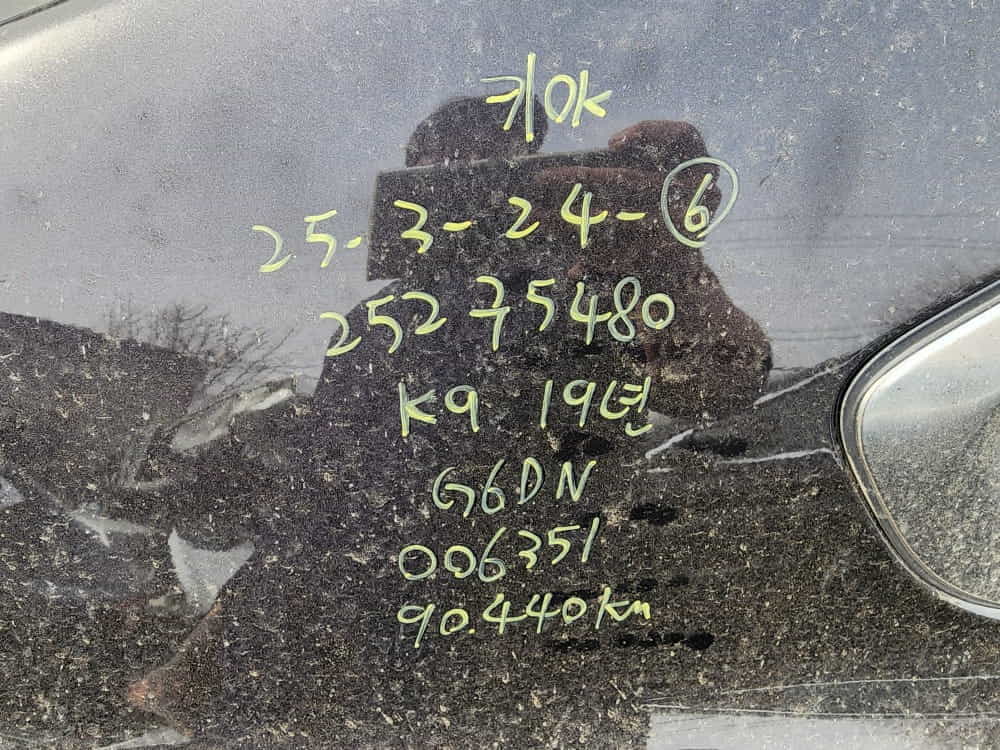 키OK
25-3-24-6
25275480
K9 19년
G6DN
006351
90.440km